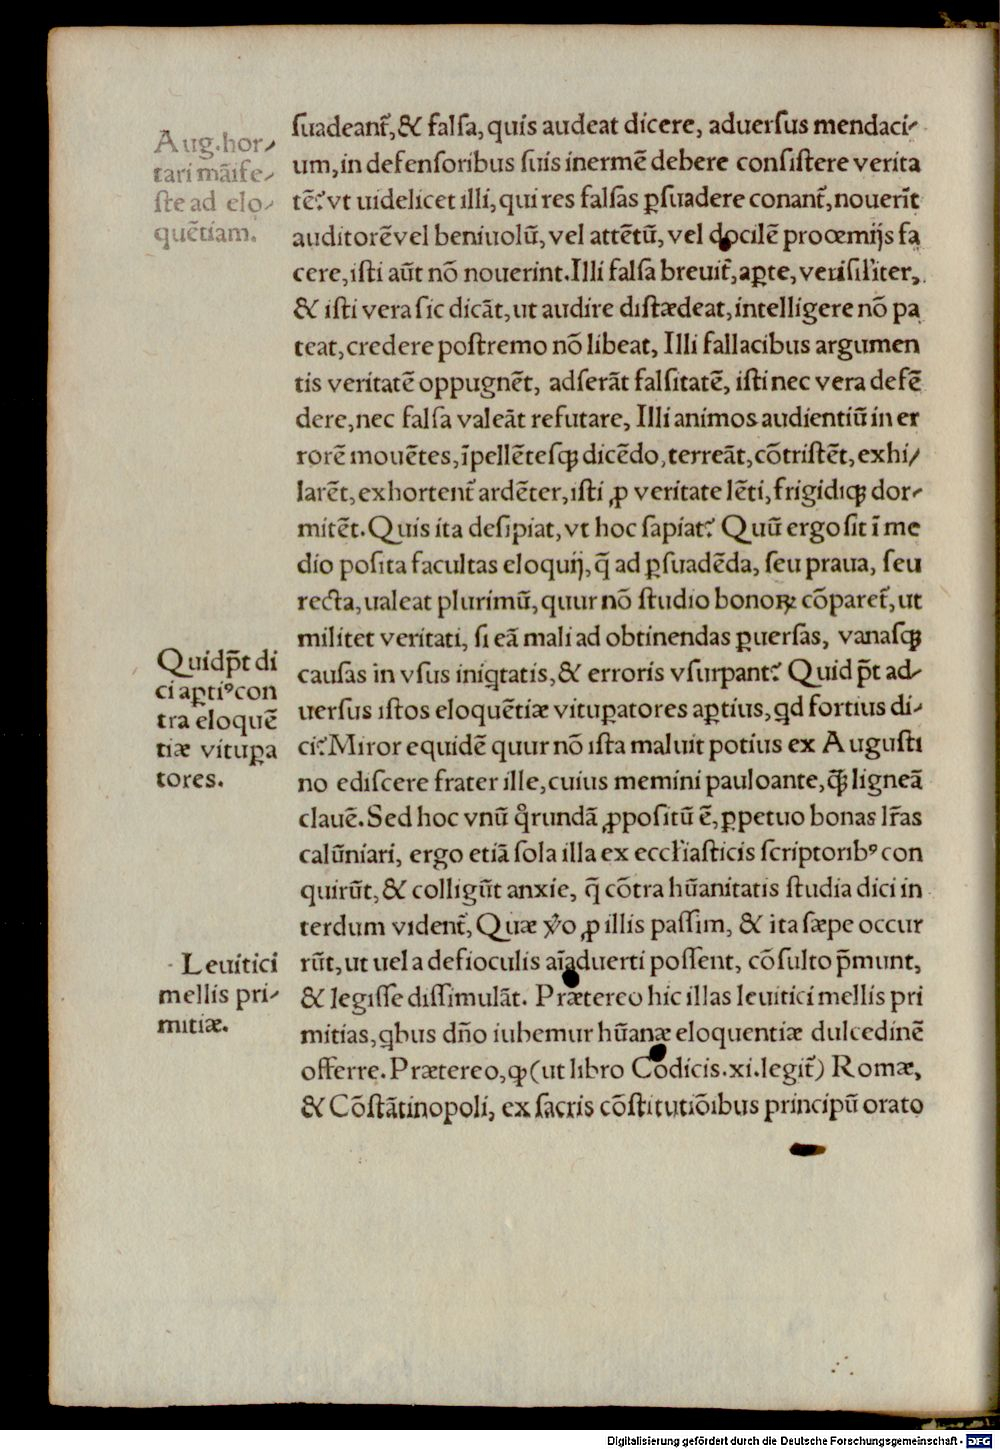 Aug. hor⸗
tari māife⸗
ſte ad elo⸗
quētiam.
ſuadeant̃, & falſa, quis audeat dicere, aduerſus mendaci⸗
um, in defenſoribus ſuis inermē debere conſiſtere verita
tē? vt uidelicet illi, qui res falſas ꝑſuadere conant̃, nouerīt
auditorē vel beniuolū, vel attētū, vel docilē prooemijs fa
cere, iſti aūt nō nouerint. Illi falſa breuit̃, aꝑte, veriſiłiter,
& iſti vera ſic dicāt, ut audire diſtædeat, intelligere nō pa
teat, credere poſtremo nō libeat, Illi fallacibus argumen
tis veritatē oppugnēt, adſerāt falſitatē, iſti nec vera defē
dere, nec falſa valeāt refutare, Illi animos audientiū in er
rorē mouētes, īpellēteſqꝫ dicēdo, terreāt, cōtriſtēt, exhi⸗
larēt, exhortent̃ ardēter, iſti ꝓ veritate lēti, frigidiqꝫ dor⸗
mitēt. Quis ita deſipiat, vt hoc ſapiat? Quū ergo ſit ī me
dio poſita facultas eloquij, q̄ ad ꝑſuadēda, ſeu praua, ſeu
recta, ualeat plurimū, quur nō ſtudio bonoꝝ cōparet̃, ut
militet veritati, ſi eā mali ad obtinendas ꝑuerſas, vanaſqꝫ
cauſas in vſus iniꝗtatis, & erroris vſurpant̃? Quid p̄t ad⸗
uerſus iſtos eloquētiæ vituꝑatores aꝑtius, ꝗd fortius di⸗
ci? Miror equidē quur nō iſta maluit potius ex Auguſti
no ediſcere frater ille, cuius memini pauloante, q̄ꝫ ligneā
clauē. Sed hoc vnū q̊rundā ꝓpoſitū ē, ꝑpetuo bonas lr̄as
calūniari, ergo etiā ſola illa ex eccłiaſticis ſcriptoribꝰ con
quirūt, & colligūt anxie, q̄ cōtra hūanitatis ſtudia dici in
terdum vident̃, Quæ ꝟo ꝓ illis paſſim, & ita ſæpe occur
rūt, ut uel a defioculis aīaduerti poſſent, cōſulto p̄munt,
& legiſſe diſſimulāt. Prætereo hic illas leuitici mellis pri
mitias, ꝗbus dño iubemur hūanæ eloquentiæ dulcedinē
offerre. Prætereo, ꝙ (ut libro Codicis .xi. legit̃) Romæ,
& Cōſtātinopoli, ex ſacris cōſtitutiōibus principū orato
Quid p̄t di
ci aꝑtiꝰ con
tra eloquē
tiæ vituꝑa
tores.
Leuitici
mellis pri⸗
mitiæ.
Digitalisierung gefördert durch die Deutsche Forschungsgemeinschaft - DFG